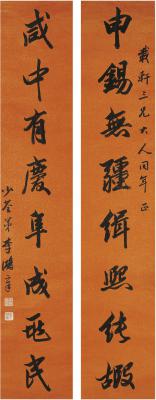 載軒三兄大人同年正
申錫無疆緝熙純嘏
咸中有慶阜成兆民
少荃弟李鴻章